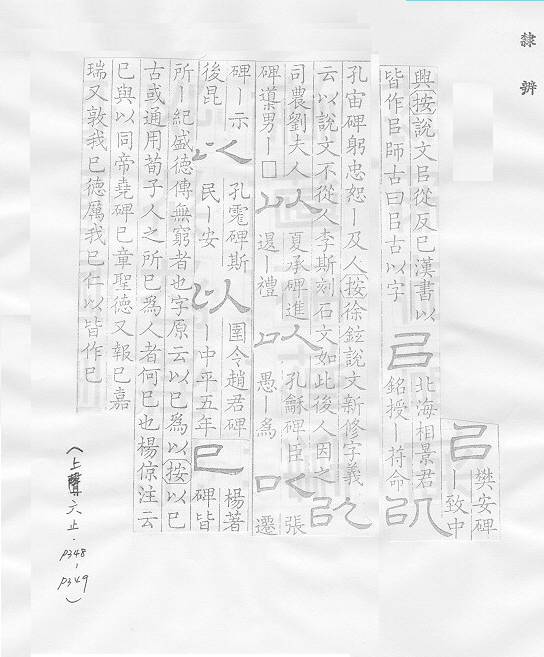 隸辨
㠯 樊安碑
丨致中
興按說文㠯從反巳漢書以
皆作㠯師古曰㠯古以字
㠯 北海相景君
銘授丨苻命
㠯
孔宙碑躬忠恕丨及人按徐鉉說文新修字義
云以說文不從人李斯刻石文如此後人因之
㠯
司農劉夫人
碑㯳男丨□
以 夏承碑進
退丨禮
以 孔龢碑臣
愚丨為
以 張
遷
碑丨示
後昆
以 孔霮碑斯
民丨安
以 圉令趙君碑
丨中平五年
巳 楊著
碑皆
所丨紀盛德傳無窮者也字原云以巳為以按以巳
古或通用荀子人之所巳為人者何巳也楊倞注云
巳與以同帝堯碑巳章聖德又報巳嘉
瑞又敦我巳德厲我巳仁以皆作巳
(上聲六止·P348-P349)